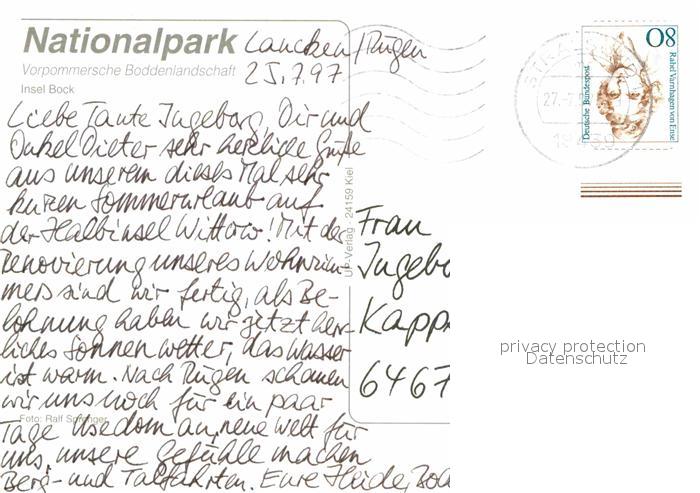 Nationalpark
Vorpommersche Boddenlandschaft
Insel Bock
Lancken/Rügen
25.7.97
Liebe Tante Ingeborg, Dir und
Onkel Dieter sehr herzliche Grüße
aus unserem dieses Mal sehr
kurzen Sommerurlaub auf
der Halbinsel Wittow! Mit der
Renovierung unseres Wohnzim-
mers sind wir fertig, als Be-
lohnung haben wir jetzt herr-
liches Sonnenwetter, das Wasser
ist warm. Nach Rügen schauen
wir uns noch für ein paar
Tage Usedom an, neue Welt für
uns, unsere Gefühle machen
Berg- und Talfahrten. Eure Heide, Bo
Foto: Ralf Sprenger
UP-Verlag · 24159 Kiel
Frau
Ingebo
Kapp
6467
80
Deutsche Bundespost
Rahel Varnhagen von Ense
STRALSUND
27.-7
18439
privacy protection
Datenschutz